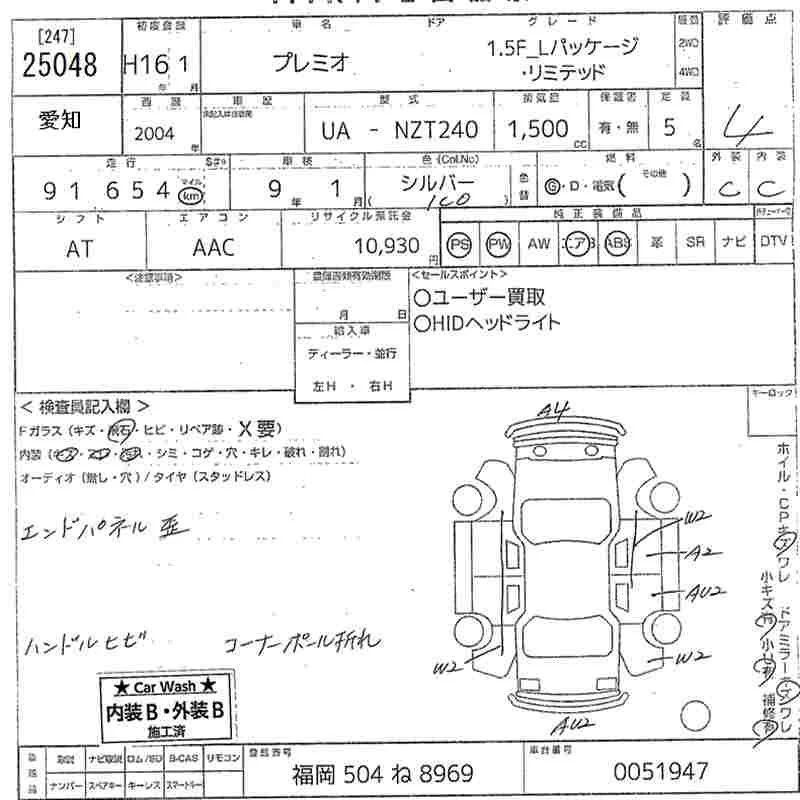 [247]
25048
初度登録
H16 1
年 月
車名
プレミオ
ドア
グレード
1.5F_Lパッケージ
・リミテッド
2WD
4WD
評価点
4
愛知
2004
年
車歴
型式
UA - NZT240
排気量
1,500
CC
有・無
定員
5
名
外装
C
内装
C
走行
91654
マイル
km
車検
9
年
1
月
色 (Col.No)
シルバー
1C0
色替
燃料
G・D・電気( その他 )
シフト
AT
エアコン
AAC
リサイクル預託金
10,930
円
純正装備品
PS PW AW エアB ABS 革 SR ナビ DTV
<注意事項>
月 日
ディーラー・並行
左H ・ 右H
<セールスポイント>
○ユーザー買取
○HIDヘッドライト
キーロック
< 検査員記入欄 >
Fガラス (キズ・飛石・ヒビ・リペア跡・X要)
シミ・コゲ・穴・キレ・破れ・割れ)
オーディオ (無し・穴) / タイヤ (スタッドレス)
エンドパネル 歪
ハンドルヒビ
コーナーポール折れ
A4
W2
A2
AU2
W2
W2
AU2
ホイル・CPキズワレ ドアミラーキズワレ
小キズ有 小U有 補修有
★ Car Wash ★
内装B・外装B
施工済
取説 ナビ取説 ロム/SD B-CAS リモコン
ナンバー スペアキー キーレス スマートキー
登録番号
福岡 504 ね 8969
車台番号
0051947